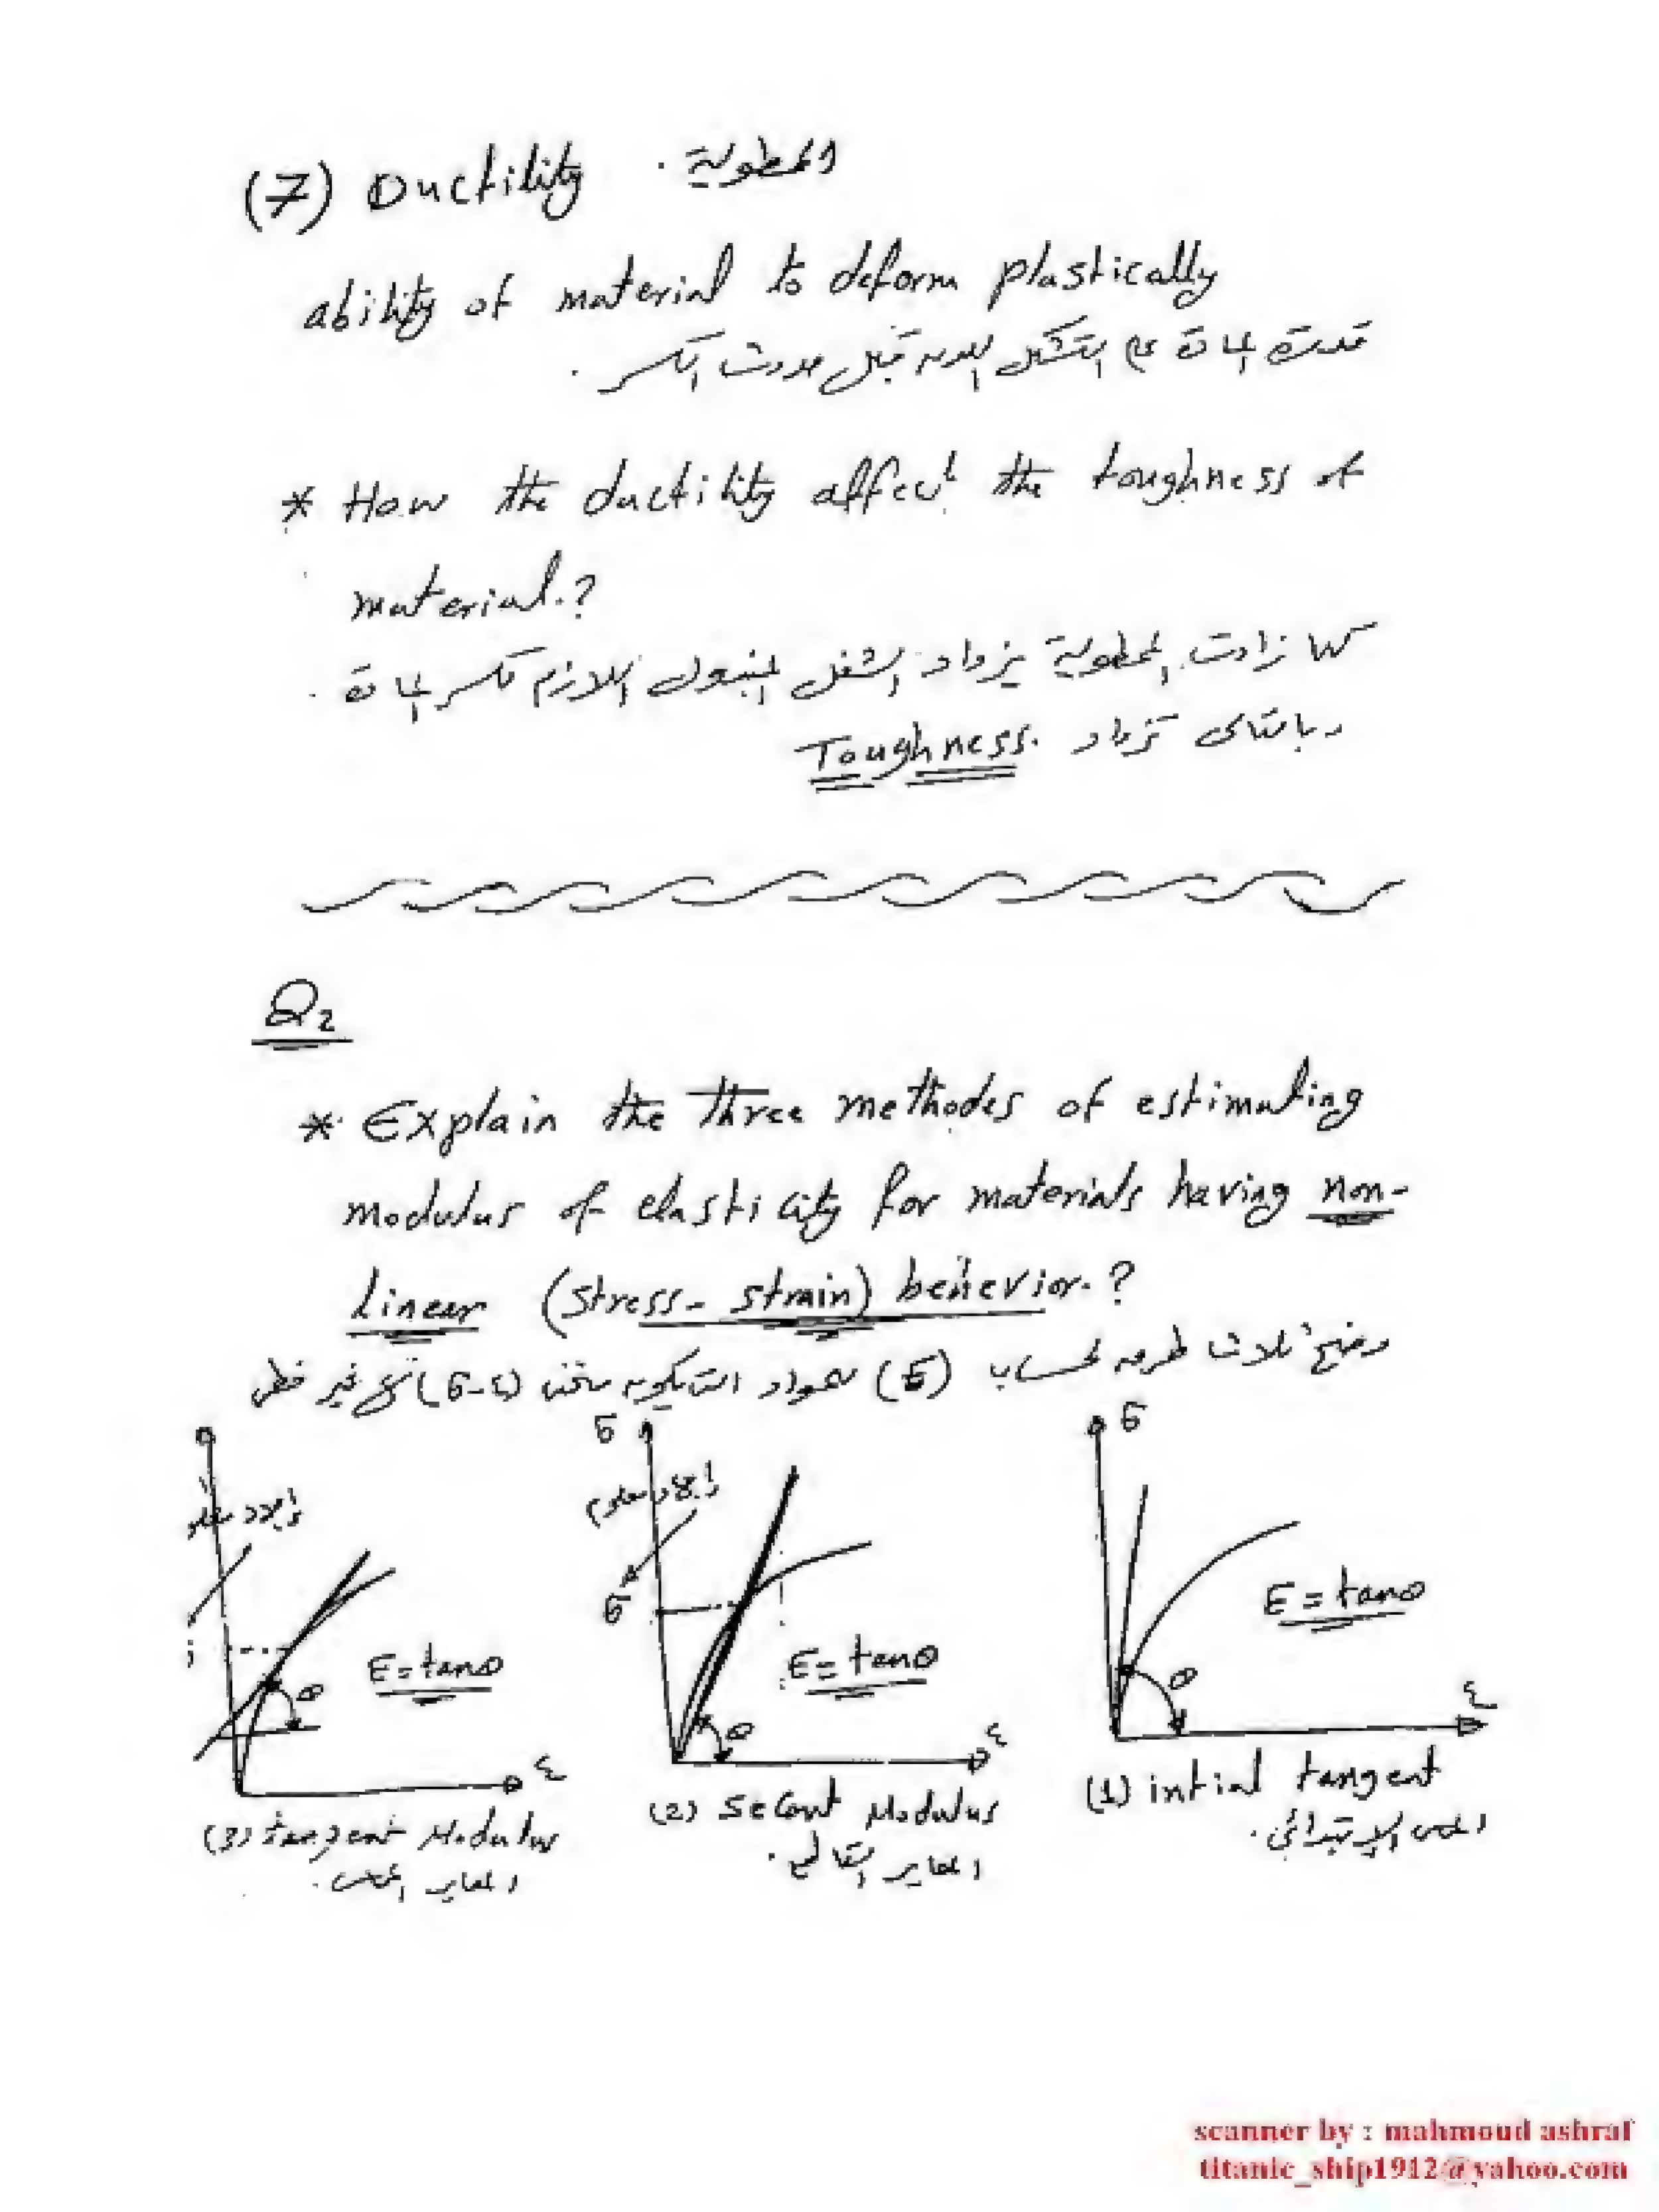 (7) Ductility المطولية .
ability of material to deform plastically
قدرة المادة على التشكل اللدن قبل حدوث الكسر .
* How the ductility affect the toughness of
material.?
كلما زادت المطولية يزداد الشغل المبذول اللازم لكسر المادة .
وبالتالى تزداد Toughness.
Q2
* Explain the three methodes of estimating
modulus of elasticity for materials having non-
linear (stress- strain) behevior.?
وضح ثلاث طرق لحساب (E) للمواد التى يكون منحنى (σ-ε) غير خطى
σ
E = tanθ
θ
ε
(1) intial tangent
المماس الإبتدائى .
σ
إجهاد معلوم
σ
E = tanθ
θ
ε
(2) Secant Modulus
المعاير القاطع .
إجهاد معلوم
E = tanθ
θ
ε
(3) tangent Modulus
المعاير المماس .
scanner by : mahmoud ashraf
titanic_ship1912@yahoo.com